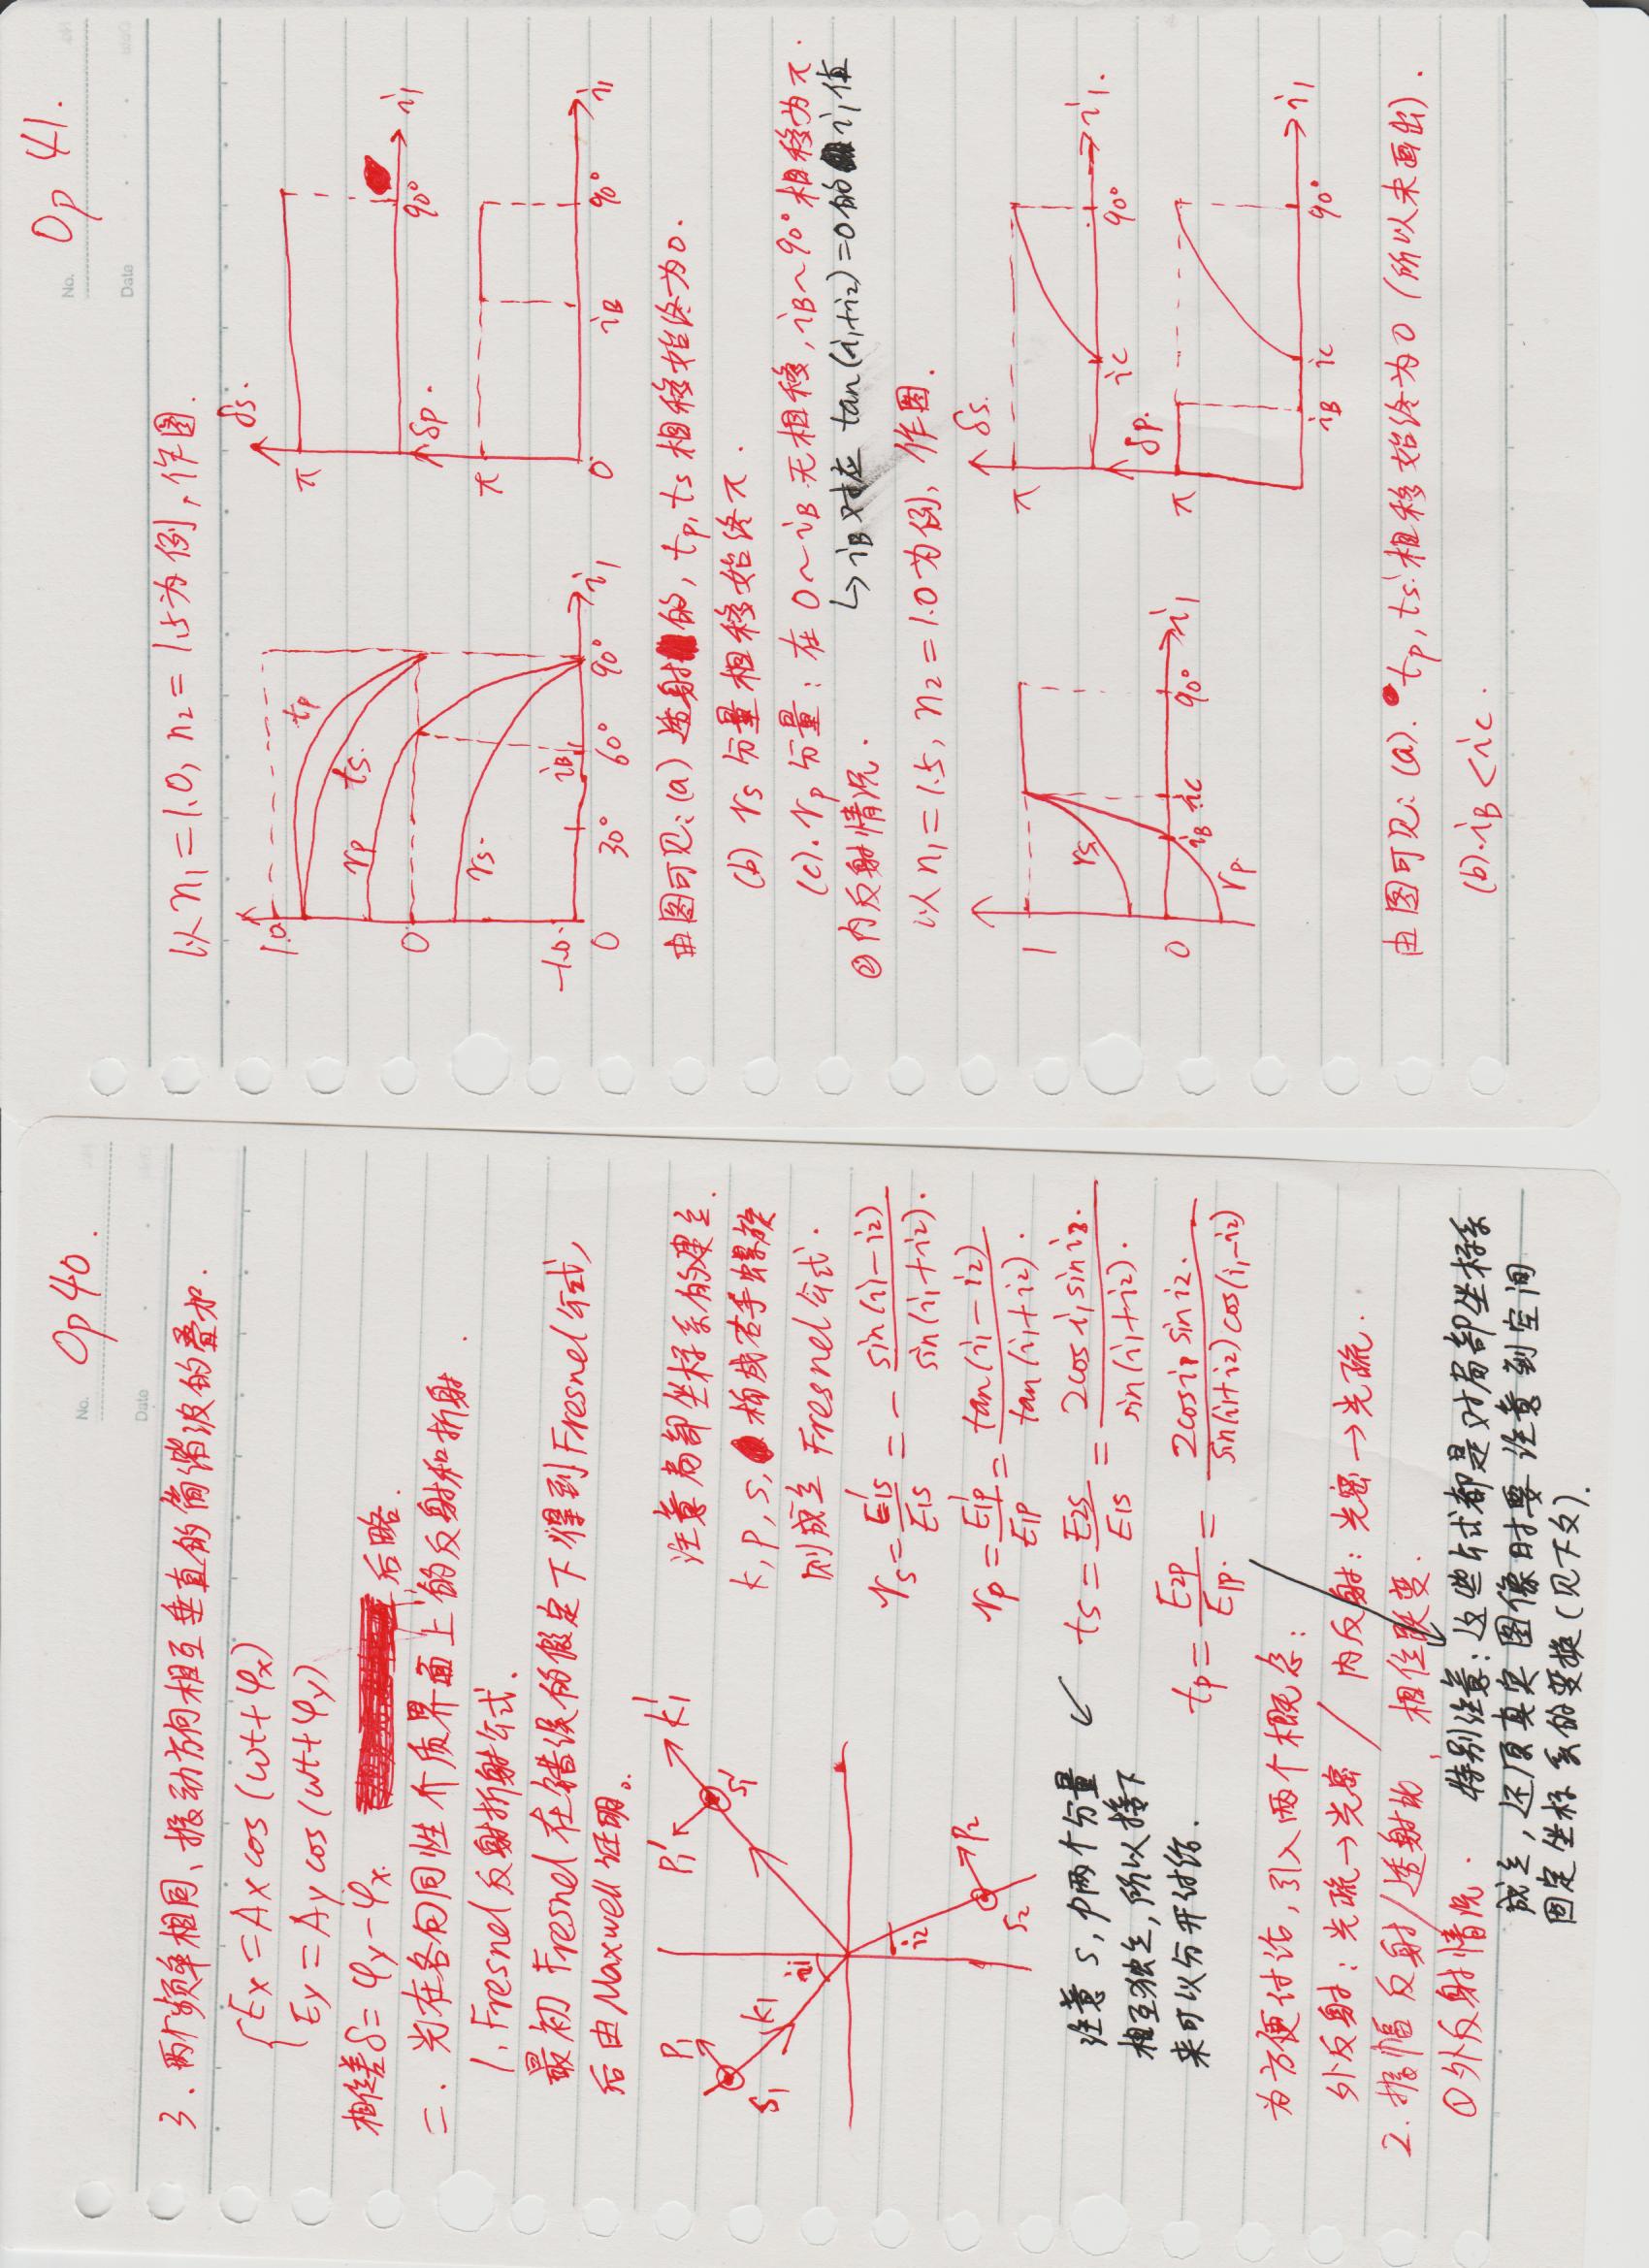 No. Op 40.
Date
3. 两个频率相同、振动方向相互垂直的简谐波的叠加.
Ex = Ax cos (ωt + φx)
Ey = Ay cos (ωt + φy)
相位差 δ = φy - φx. 后略.
二. 光在各向同性介质界面上的反射和折射.
1. Fresnel 反射折射公式.
最初 Fresnel 在错误的假定下得到 Fresnel 公式,
后由 Maxwell 证明。
P1
P1'
k1'
S1
k1
S1'
i1
i2
P2
S2
注意局部坐标系的建立.
k, p, s, 构成右手螺旋
则成立 Fresnel 公式.
rs = E1s' / E1s = - sin(i1 - i2) / sin(i1 + i2).
rp = E1p' / E1p = tan(i1 - i2) / tan(i1 + i2).
ts = E2s / E1s = 2cos i1 sin i2. / sin(i1 + i2).
tp = E2p / E1p. = 2cos i1 sin i2. / sin(i1 + i2) cos(i1 - i2)
注意 s, p 两个分量
相互独立, 所以接下
来可以分开讨论.
为方便讨论, 引入两个概念:
外反射: 光疏→光密 / 内反射: 光密→光疏.
2. 振幅反射/透射比, 相位跃变.
① 外反射情况.
特别注意: 这些公式都是对局部坐标系
成立, 还原真实图像时要注意到空间
固定坐标系的变换 (见下文).
No. Op 41.
Date
以 n1 = 1.0, n2 = 1.5 为例, 作图.
1.0
tp
ts.
rp
0
rs.
-1.0.
iB
0 30° 60° 90° i1
δs.
π
90° i1
δp.
π
0 iB 90° i1
由图可见: (a) 透射的, tp, ts 相移始终为0.
(b) rs 分量相移始终π.
(c). rp 分量: 在 0~iB 无相移, iB~90° 相移为π.
↳ iB 对应 tan(i1+i2)=0 的 i1 值
② 内反射情况.
以 n1 = 1.5, n2 = 1.0 为例, 作图.
1
rs
0
iB ic 90° i1
rp
δs.
π
ic 90° i1.
δp.
π
iB ic 90° i1
由图可见: (a). tp, ts 相移始终为0 (所以未画出).
(b). iB < ic.